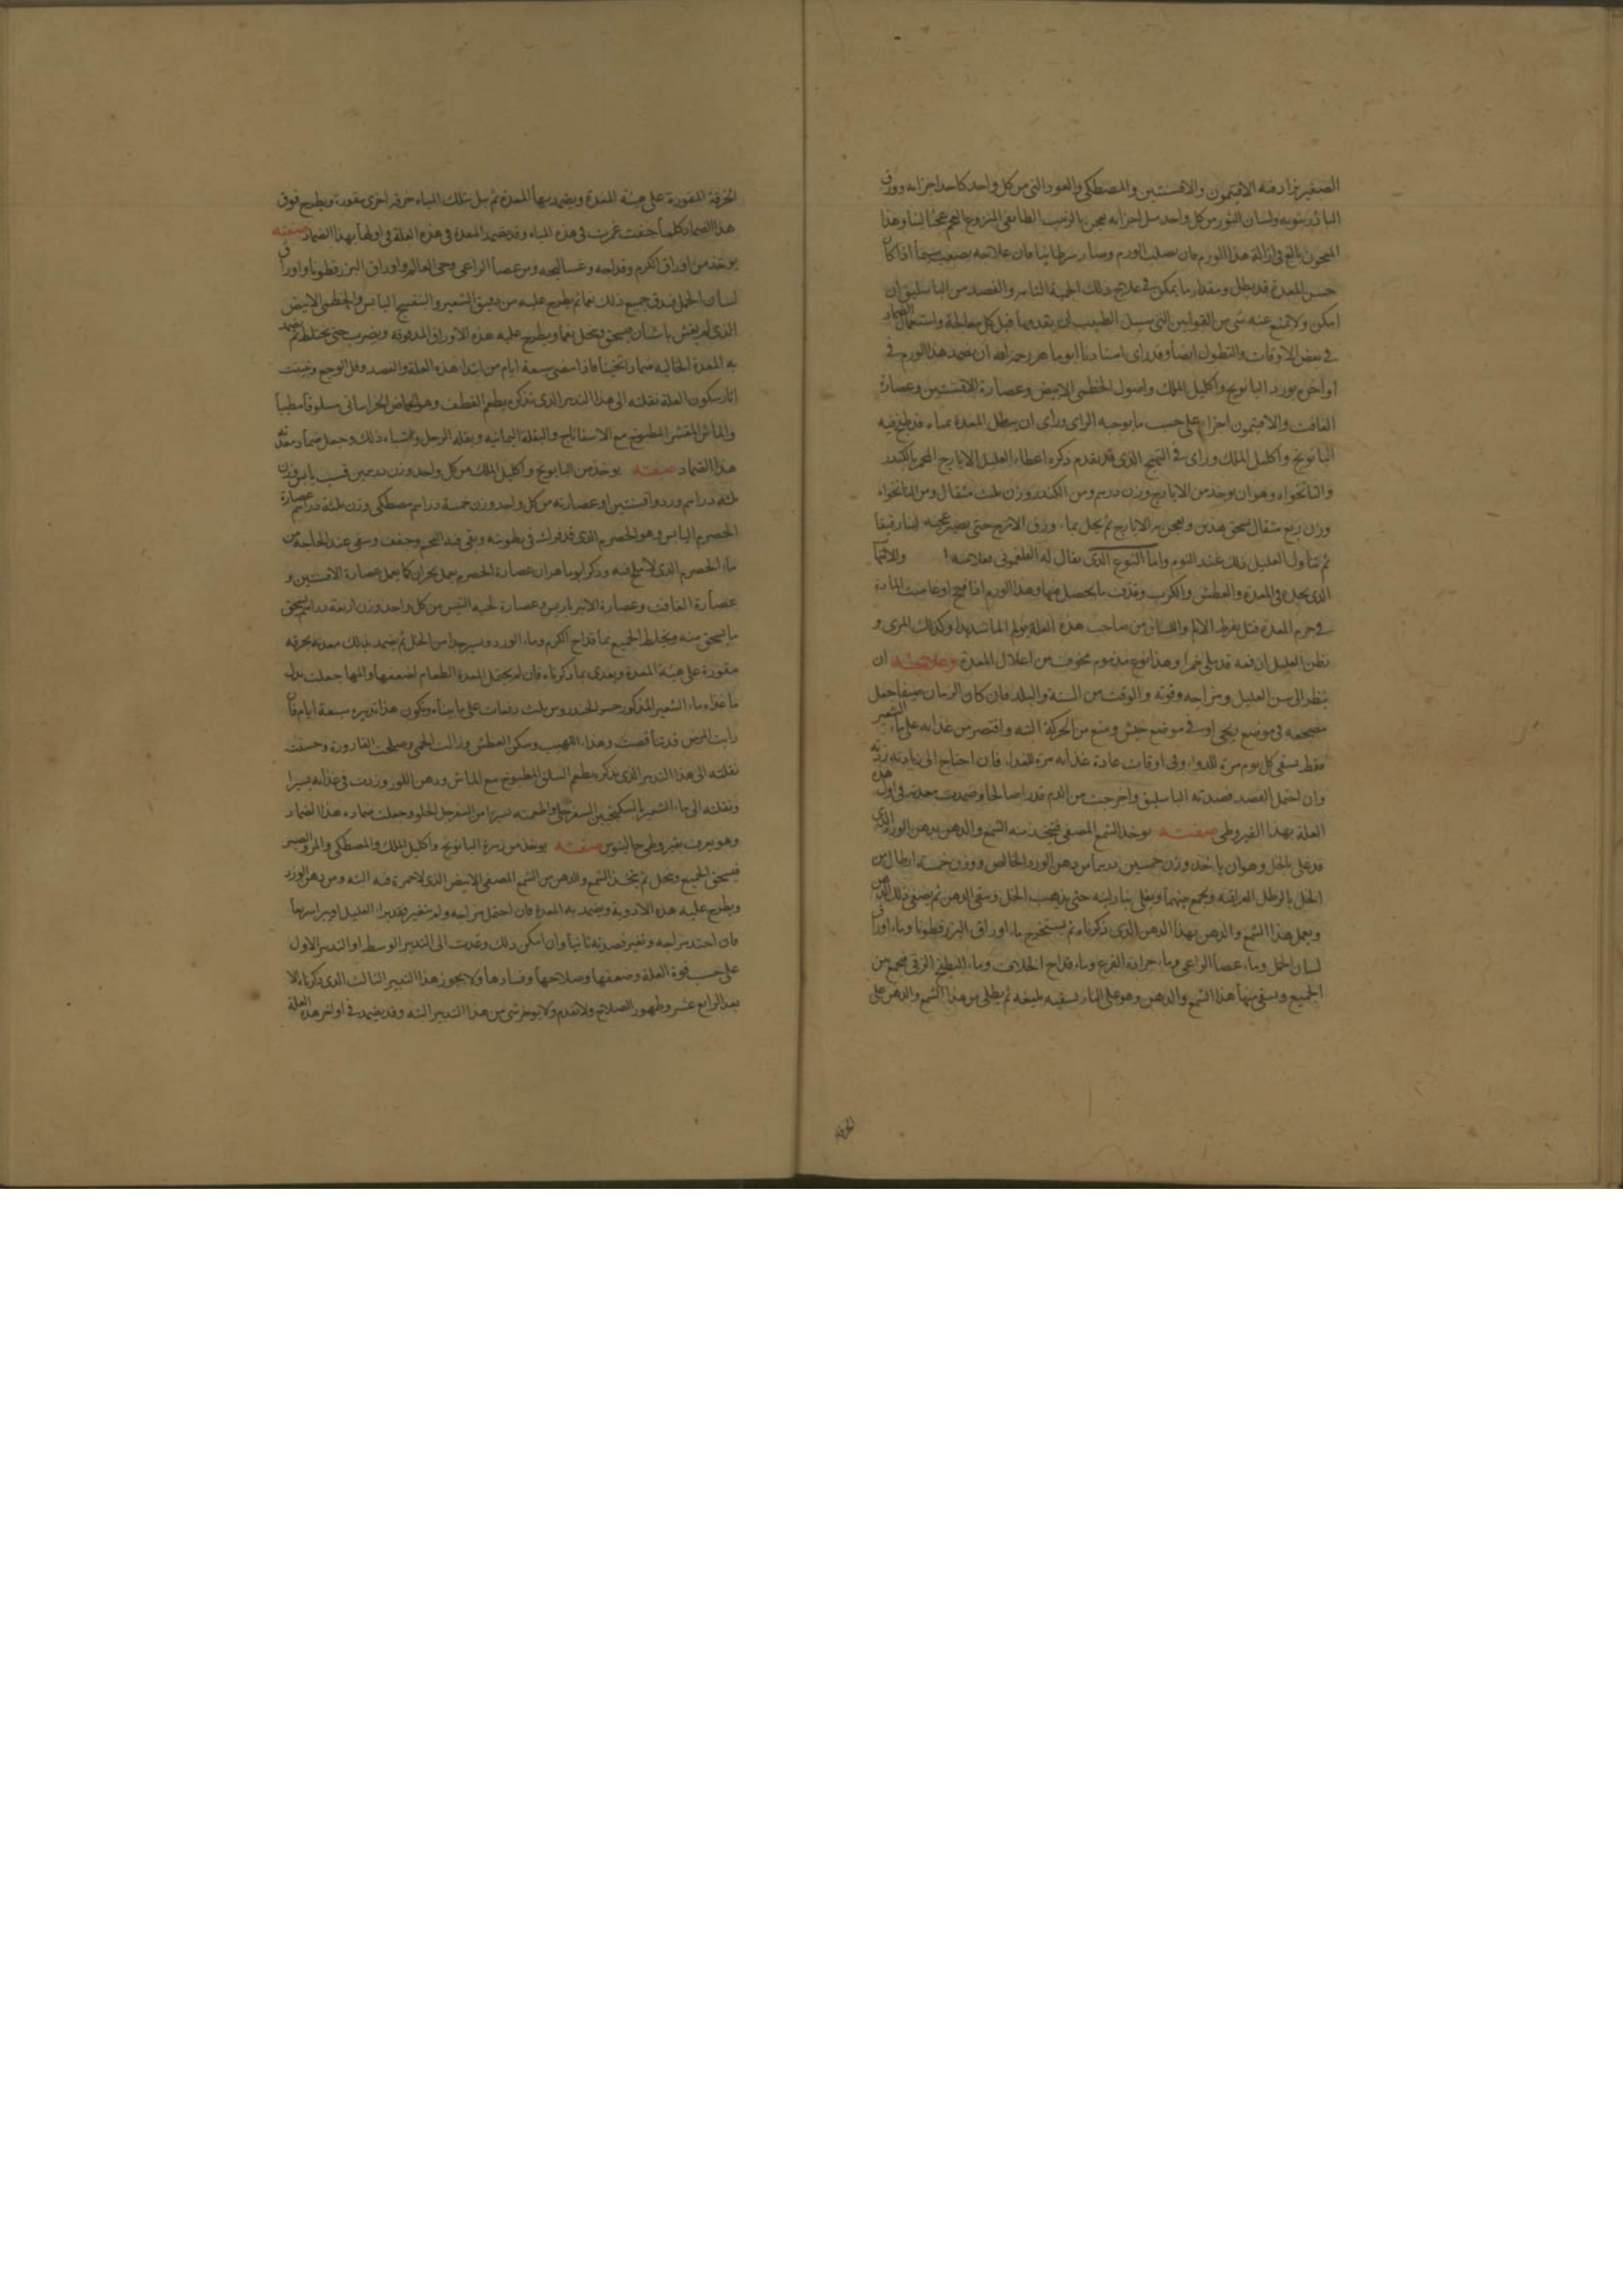 الصغير يزاد فيه الافتيمون والافسنتين والمصطكى والعود الني من كل واحد كاحد اجزايه وورق
البادرنبويه ولسان الثور من كل واحد مثل اجزايه يعجن بالزبيب الطايفى المنزوع العجم عجنا لينا وهذا
المعجون بالغ فى ازالة هذا الورم فان صلب الورم وصار سرطانيا فان علاجه يصعب سيما اذا كان
حس المعدة قد بطل ومقدار ما يمكن فى علاج ذلك الحمية التامة والفصد من الباسليق ان
امكن ولا تمنع عنه شى من القوانين التى سبيل الطبيب ان يقدمها قبل كل معالجة واستعمال الضماد
فى بعض الاوقات والنطول ايضا وقد راى استادنا ابو ماهر رحمه الله ان يضمد هذا الورم فى
اواخره بورد البابونج واكليل الملك واصول الخطمى الابيض وعصارة الافسنتين وعصارة
الغافت والافتيمون اجزاء على حسب ما يوجبه الراى وراى ان ينطل المعدة بماء قد طبخ فيه
البابونج واكليل الملك وراى فى التهيج الذى قد تقدم ذكره اعطاء العليل الايارج المخمر بالكندر
والنانخواه وهو ان يوخذ من الايارج وزن درهم ومن الكندر وزن ثلث مثقال ومن النانخواه
وزن ربع مثقال يسحق هذين ويعجن بهم الايارج ثم يحل بماء ورق الاترج حتى يصير عجينه لينا رقيقا
ثم يتناول العليل ذلك عند النوم واما النوع الذى يقال له الفلغمونى فعلامته والالتهاب
الذى يجده فى المعدة والعطش والكرب وقذف ما يحصل فيها وهذا الورم اذا فتح او غاصت المادة
فى جرم المعدة قتل بفرط الالم واللسان من صاحب هذه العلة يولم الما شديدا وكذلك المرى و
يظن العليل ان فمه قد ملى خمرا وهذا نوع مذموم مخوف من اعلال المعدة وعلاجه ان
ينظر الى سن العليل ومزاجه وقوته والوقت من السنة والبلد فان كان الزمان صيفا جعل
مضجعه فى موضع ريحى او فى موضع خيش ومنع من الحركة البته واقتصر من غذايه على ماء الشعير
فقط يسقى كل يوم مرة للدواء وفى اوقات عادة غذايه مرة للغداء فان احتاج الى زيادته زدته
وان احتمل الفصد فصدته الباسليق واخرجت من الدم قدرا صالحا وضمدت معدته فى اول هذه
العلة بهذا القيروطى صفته يوخذ الشمع المصفى فيتخذ منه الشمع والدهن بدهن الورد الذى
قد غلى بالخل وهو ان ياخذ وزن خمسين درهما من دهن الورد الخالص ووزن خمسة ارطال من
الخل بالرطل العراقية ويجمع بينهما ويغلى بنار لينة حتى يذهب الخل ويبقى الدهن ثم يصفى ذلك الدهن
ويعمل هذا الشمع والدهن بهذا الدهن الذى ذكرناه ثم يستخرج ماء اوراق البزرقطونا وماء اوراق
لسان الحمل وماء عصا الراعى وماء جرادة القرع وماء قداح الخلاف وماء البطيخ الرقى فيجمع من
الجميع ويسقى منها هذا الشمع والدهن وهو على النار يسقيه تليغه ثم يطلى من هذا الشمع والدهن على
الخرقة
الخرقة المقورة على هيئة المعدة ويضمد بها المعدة ثم يبل بتلك المياه خرقة اخرى مقورة ويطرح فوق
هذا الضماد كلما جفت غمرت فى هذه المياه وقد يضمد المعدة فى هذه العلة فى اولها بهذا الضماد صفته
يوخذ من اوراق الكرم وقداحه وعساليجه ومن عصا الراعى وحى العالم واوراق البزرقطونا واوراق
لسان الحمل فيدق جميع ذلك نعما ثم يطرح عليه من دقيق الشعير والبنفسج اليابس والخطمى الابيض
الذى لم يغش باشنان فيسحق وينخل نعما ويطرح عليه هذه الاوراق المدقوقة ويضرب حتى يختلط ثم يضمد
به المعدة الخالية ضمادا ثخينا فاذا مضى سبعة ايام من ابتدا هذه العلة والفصد وقل الوجع وتبينت
اثار سكون العلة نقلته الى هذا التدبير الذى نذكره يطعم القطف وهو الحماض الخراسانى سلوقا مطيبا
والماش المقشر المطبوخ مع الاسفاناج والبقلة اليمانيه وبقلة الرجل واشباه ذلك وجعل ضماد معدته
هذا الضماد صفته يوخذ من البابونج واكليل الملك من كل واحد وزن درهمين قسب يابس وزن
ثلثة دراهم ورد وافسنتين او عصارته من كل واحد وزن خمسة دراهم مصطكى وزن ثلثة دراهم عصارة
الحصرم اليابس وهو الحصرم الذى قد فرك فى بطونه وبقى فيه العجم وجفف وسقى عند الحاجة من
ماء الحصرم الذى لا ملح فيه وذكر ابو ماهر ان عصارة الحصرم يعمل بحران كما يعمل عصارة الافسنتين و
عصارة الغافت وعصارة الانبرباريس وعصارة لحية التيس من كل واحد وزن اربعة دراهم يسحق
ما يسحق منه ويخلط الجميع بماء قداح الكرم وماء الورد ويسير جدا من الخل ثم يضمد بذلك معدته بخرقة
مقورة على هيئة المعدة ويغذى بما ذكرناه فان لم يحتمل المعدة الطعام لضعفها والمها جعلت بدل
ما غذاه ماء الشعير المذكور حسو الخندروس ثلث دفعات على ما بيناه ويكون هذا تدبيره سبعة ايام فان
رايت المرض قد تناقصت وهذا اللهيب وسكن العطش وزالت الحمى وصلحت القارورة وحسنت
نقلته الى هذا التدبير الذى نذكر يطعم السلق المطبوخ مع الماش ودهن اللوز وزدت فى غذايه يسيرا
ونقلته الى ماء الشعير بالسكنجبين السفرجلى واطعمته يسيرا من السفرجل الحلو وجعلت ضماده هذا الضماد
وهو يعرف بقيروطى جالينوس صفته يوخذ من زهرة البابونج واكليل الملك والمصطكى والمر والصبر
فيسحق الجميع وينخل ثم يتخذ الشمع والدهن من الشمع المصفى الابيض الذى لا حمرة فيه البته ومن دهن الورد
ويطرح عليه هذه الادوية ويضمد به المعدة فان احتمل مزاجه ولم يتغير فقد برا العليل او يبرا سريعا
فان احتد مزاجه وتغير فصدته ثانيا وان امكن ذلك وعدت الى التدبير الوسط او التدبير الاول
على حسب قوة العلة وضعفها وصلاحها وفسادها ولا يجوز هذا التدبير الثالث الذى ذكرناه الا
بعد الرابع عشر وظهور الصلاح ولا تقدم ولا يوخر شى من هذا التدبير البته وقد يضمد فى اواخر هذه العلة